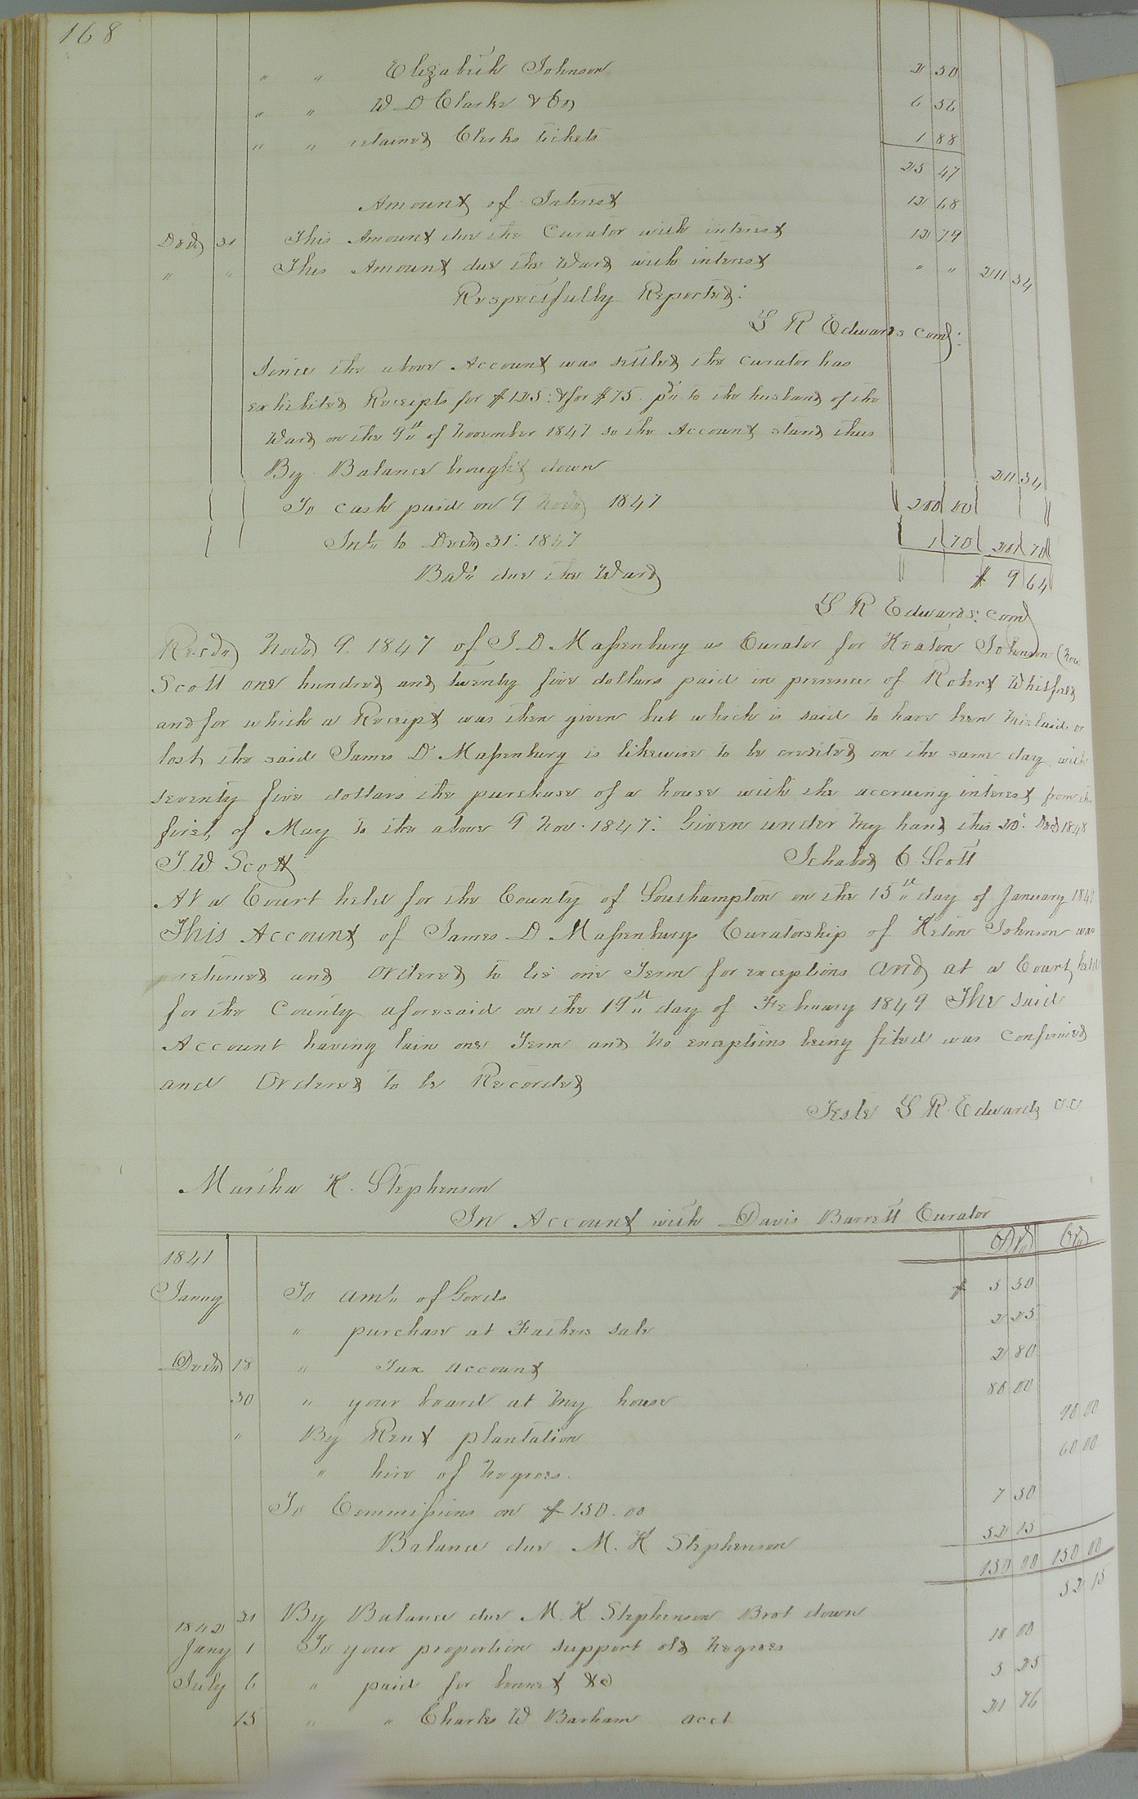 168
" " Elizabeth Johnson 2 50
" " W D Clarke & Co 6 56
" " retained Clerks tickets 1 88
25 47
Amount of Interest 12 68
Decr 31 This Amount due the Curator with interest 12 79
" " This Amount due the Ward with interest " " 211 34
Respectfully Reported:
L R Edwards Comr:
Since the above Account was settled the Curator has
exhibited Receipts for $125: & for $75. pd to the husband of the
Ward on the 9th of November 1847 so the Account stand thus
By Balance brought down 211 34
To cash paid on 9 Novr 1847 200 00
Int to Decr 31: 1847 1 70 201 70
Bal due the Ward $ 9 64
L R Edwards: Comr
Recd Novr 9. 1847 of J. D Massenburg as Curator for Keaton Johnson (now
Scott one hundred and twenty five dollars paid in presence of Robert Whitfield
and for which a Receipt was then given but which is said to have been mislaid or
lost, the said James D Massenburg is likewise to be credited on the same day with
seventy five dollars the purchase of a house with the accruing interest from the
first of May to the above 9 Nov. 1847: Given under my hand this 20: Decr 1848
J. W Scott Ichabod C. Scott
At a Court held for the County of Southampton on the 15th day of January 184
This Account of James D Massenburg Curatorship of Keton Johnson was
returned and Ordered to lie one Term for exceptions and at a Court held
for the County aforesaid on the 19th day of February 1849 The said
Account having lain one Term and no exceptions being filed was Confirmed
and Ordered to be Recorded
Teste L R. Edwards C.C
Martha K. Stephenson
In Account with Davis Barrett Curator
1841 Dr Cr
Januy To amt of Goods $ 5 30
" purchase at Fathers sale 2 25
Decr 18 " Tax account 2 80
30 " your board at my house 80 00
" By Rent plantation 90 00
" hire of Negroes. 60 00
To Commissions on $150.00 7 50
Balance due M. K Stephenson 52 15
150 00 150 00
31 By Balance due M. K. Stephenson Brot down 52 15
1842
Jany 1 To your proportion support old Negroes 18 00
July 6 " paid for bonnet &c 5 25
15 " " Charles W Barham acct 21 76